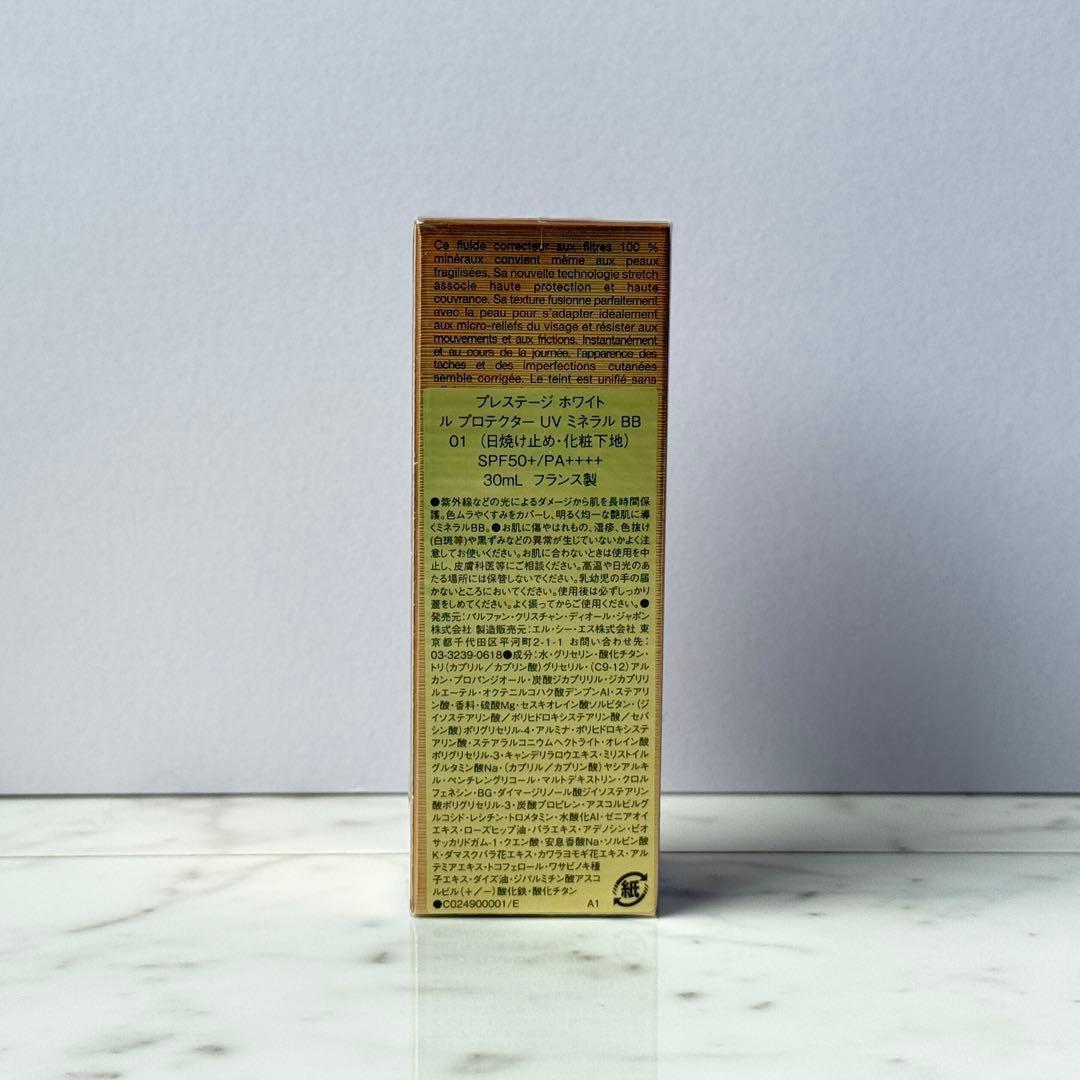 Ce fluide correcteur aux filtres 100 %
minéraux convient même aux peaux
fragilisées. Sa nouvelle technologie stretch
associe haute protection et haute
couvrance. Sa texture fusionne parfaitement
avec la peau pour s'adapter idéalement
aux micro-reliefs du visage et résister aux
mouvements et aux frictions. Instantanément
et au cours de la journée, l'apparence des
taches et des imperfections cutanées
semble corrigée. Le teint est unifié sans
プレステージ ホワイト
ル プロテクター UV ミネラル BB
01 (日焼け止め・化粧下地)
SPF50+/PA++++
30mL フランス製
●紫外線などの光によるダメージから肌を長時間保
護。色ムラやくすみをカバーし、明るく均一な艶肌に導
くミネラルBB。●お肌に傷やはれもの、湿疹、色抜け
(白斑等)や黒ずみなどの異常が生じていないかよく注
意してお使いください。お肌に合わないときは使用を中
止し、皮膚科医等にご相談ください。高温や日光のあ
たる場所には保管しないでください。乳幼児の手の届
かないところにおいてください。使用後は必ずしっかり
蓋をしめてください。よく振ってからご使用ください。●
発売元:パルファン・クリスチャン・ディオール・ジャポン
株式会社 製造販売元:エル・シー・エス株式会社 東
京都千代田区平河町2-1-1 お問い合わせ先:
03-3239-0618●成分:水・グリセリン・酸化チタン・
トリ(カプリル/カプリン酸)グリセリル・(C9-12)アル
カン・プロパンジオール・炭酸ジカプリリル・ジカプリリ
ルエーテル・オクテニルコハク酸デンプンAl・ステアリ
ン酸・香料・硫酸Mg・セスキオレイン酸ソルビタン・(ジ
イソステアリン酸/ポリヒドロキシステアリン酸/セバ
シン酸)ポリグリセリル-4・アルミナ・ポリヒドロキシステ
アリン酸・ステアラルコニウムヘクトライト・オレイン酸
ポリグリセリル-3・キャンデリラロウエキス・ミリストイル
グルタミン酸Na・(カプリル/カプリン酸)ヤシアルキ
ル・ペンチレングリコール・マルトデキストリン・クロル
フェネシン・BG・ダイマージリノール酸ジイソステアリン
酸ポリグリセリル-3・炭酸プロピレン・アスコルビルグ
ルコシド・レシチン・トロメタミン・水酸化Al・ゼニアオイ
エキス・ローズヒップ油・バラエキス・アデノシン・ビオ
サッカリドガム-1・クエン酸・安息香酸Na・ソルビン酸
K・ダマスクバラ花エキス・カワラヨモギ花エキス・アル
テミアエキス・トコフェロール・ワサビノキ種
子エキス・ダイズ油・ジパルミチン酸アスコ
ルビル(+/-)酸化鉄・酸化チタン
●C024900001/E A1
紙